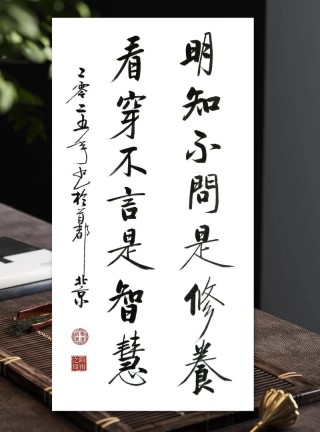 明知不問是修養
看穿不言是智慧
二零二五年書於首都北京